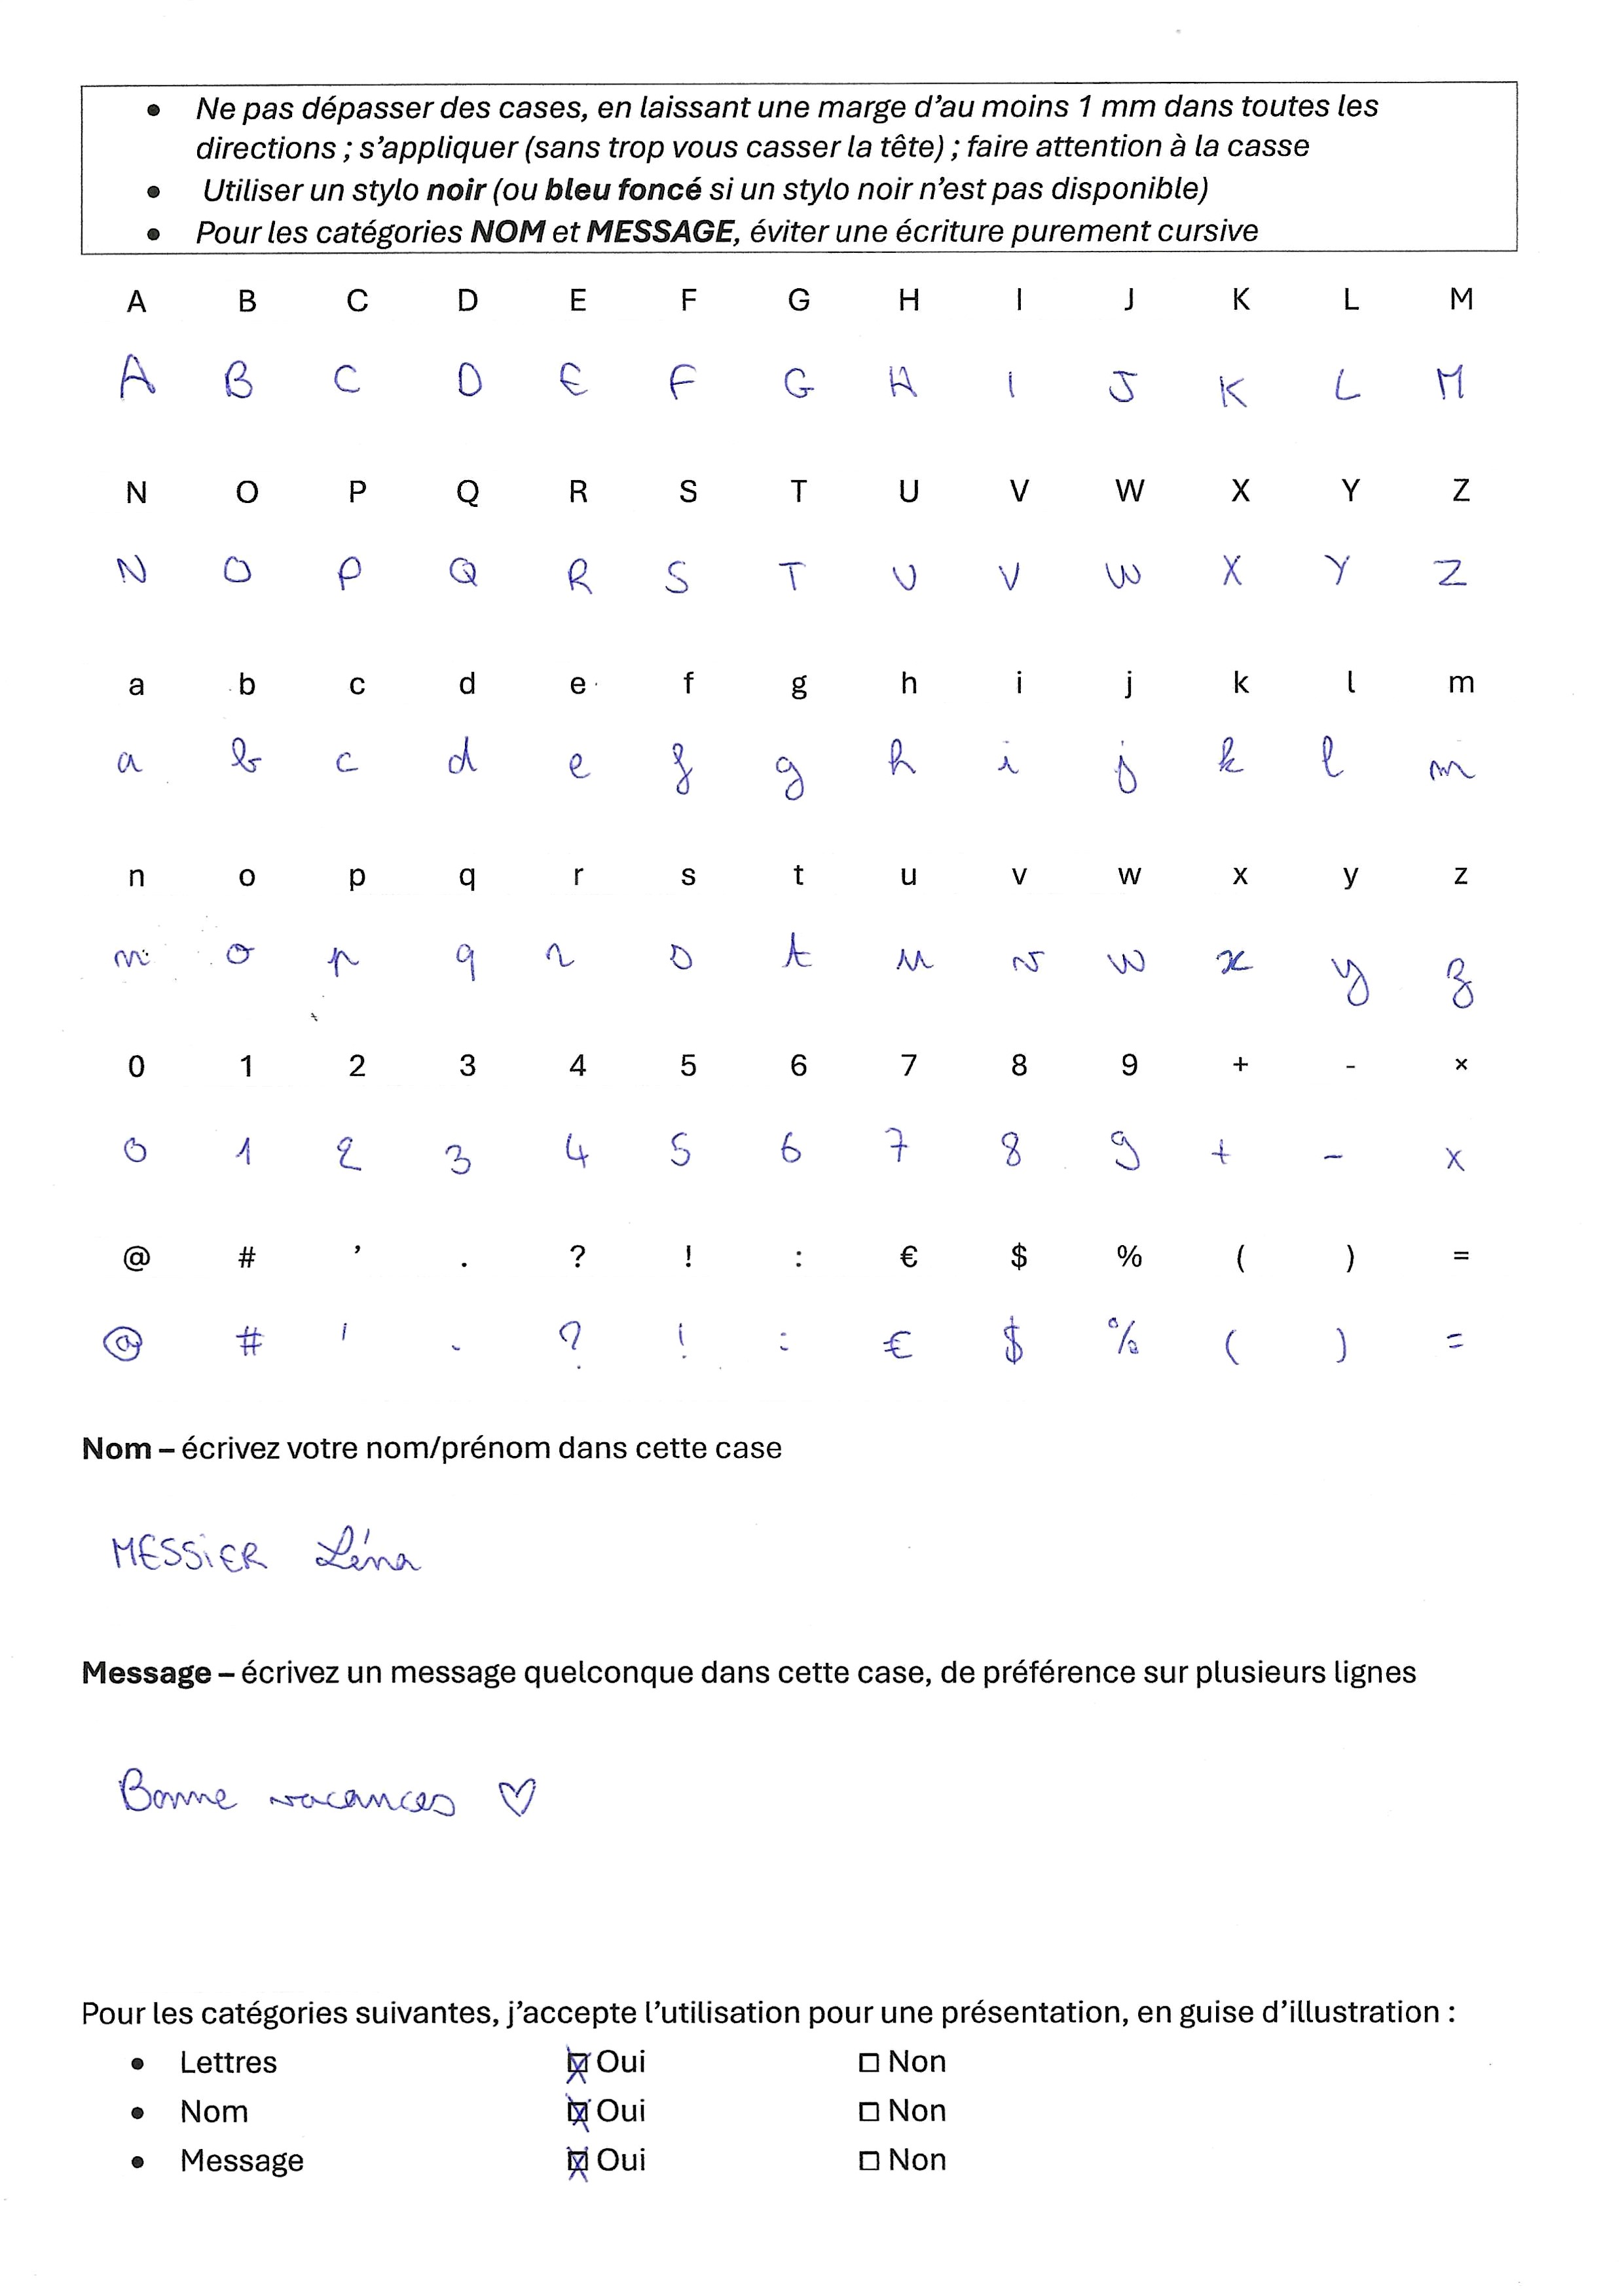 • Ne pas dépasser des cases, en laissant une marge d’au moins 1 mm dans toutes les
directions ; s’appliquer (sans trop vous casser la tête) ; faire attention à la casse
• Utiliser un stylo noir (ou bleu foncé si un stylo noir n’est pas disponible)
• Pour les catégories NOM et MESSAGE, éviter une écriture purement cursive
A B C D E F G H I J K L M
A B C D E F G H I J K L M
N O P Q R S T U V W X Y Z
N O P Q R S T U V W X Y Z
a b c d e f g h i j k l m
a b c d e f g h i j k l m
n o p q r s t u v w x y z
n o p q r s t u v w x y z
0 1 2 3 4 5 6 7 8 9 + - ×
0 1 2 3 4 5 6 7 8 9 + - ×
@ # ’ . ? ! : € $ % ( ) =
@ # ' . ? ! : € $ % ( ) =
Nom – écrivez votre nom/prénom dans cette case
MESSiER Léna
Message – écrivez un message quelconque dans cette case, de préférence sur plusieurs lignes
Bonne vacances ♡
Pour les catégories suivantes, j’accepte l’utilisation pour une présentation, en guise d’illustration :
• Lettres ☒ Oui ☐ Non
• Nom ☒ Oui ☐ Non
• Message ☒ Oui ☐ Non